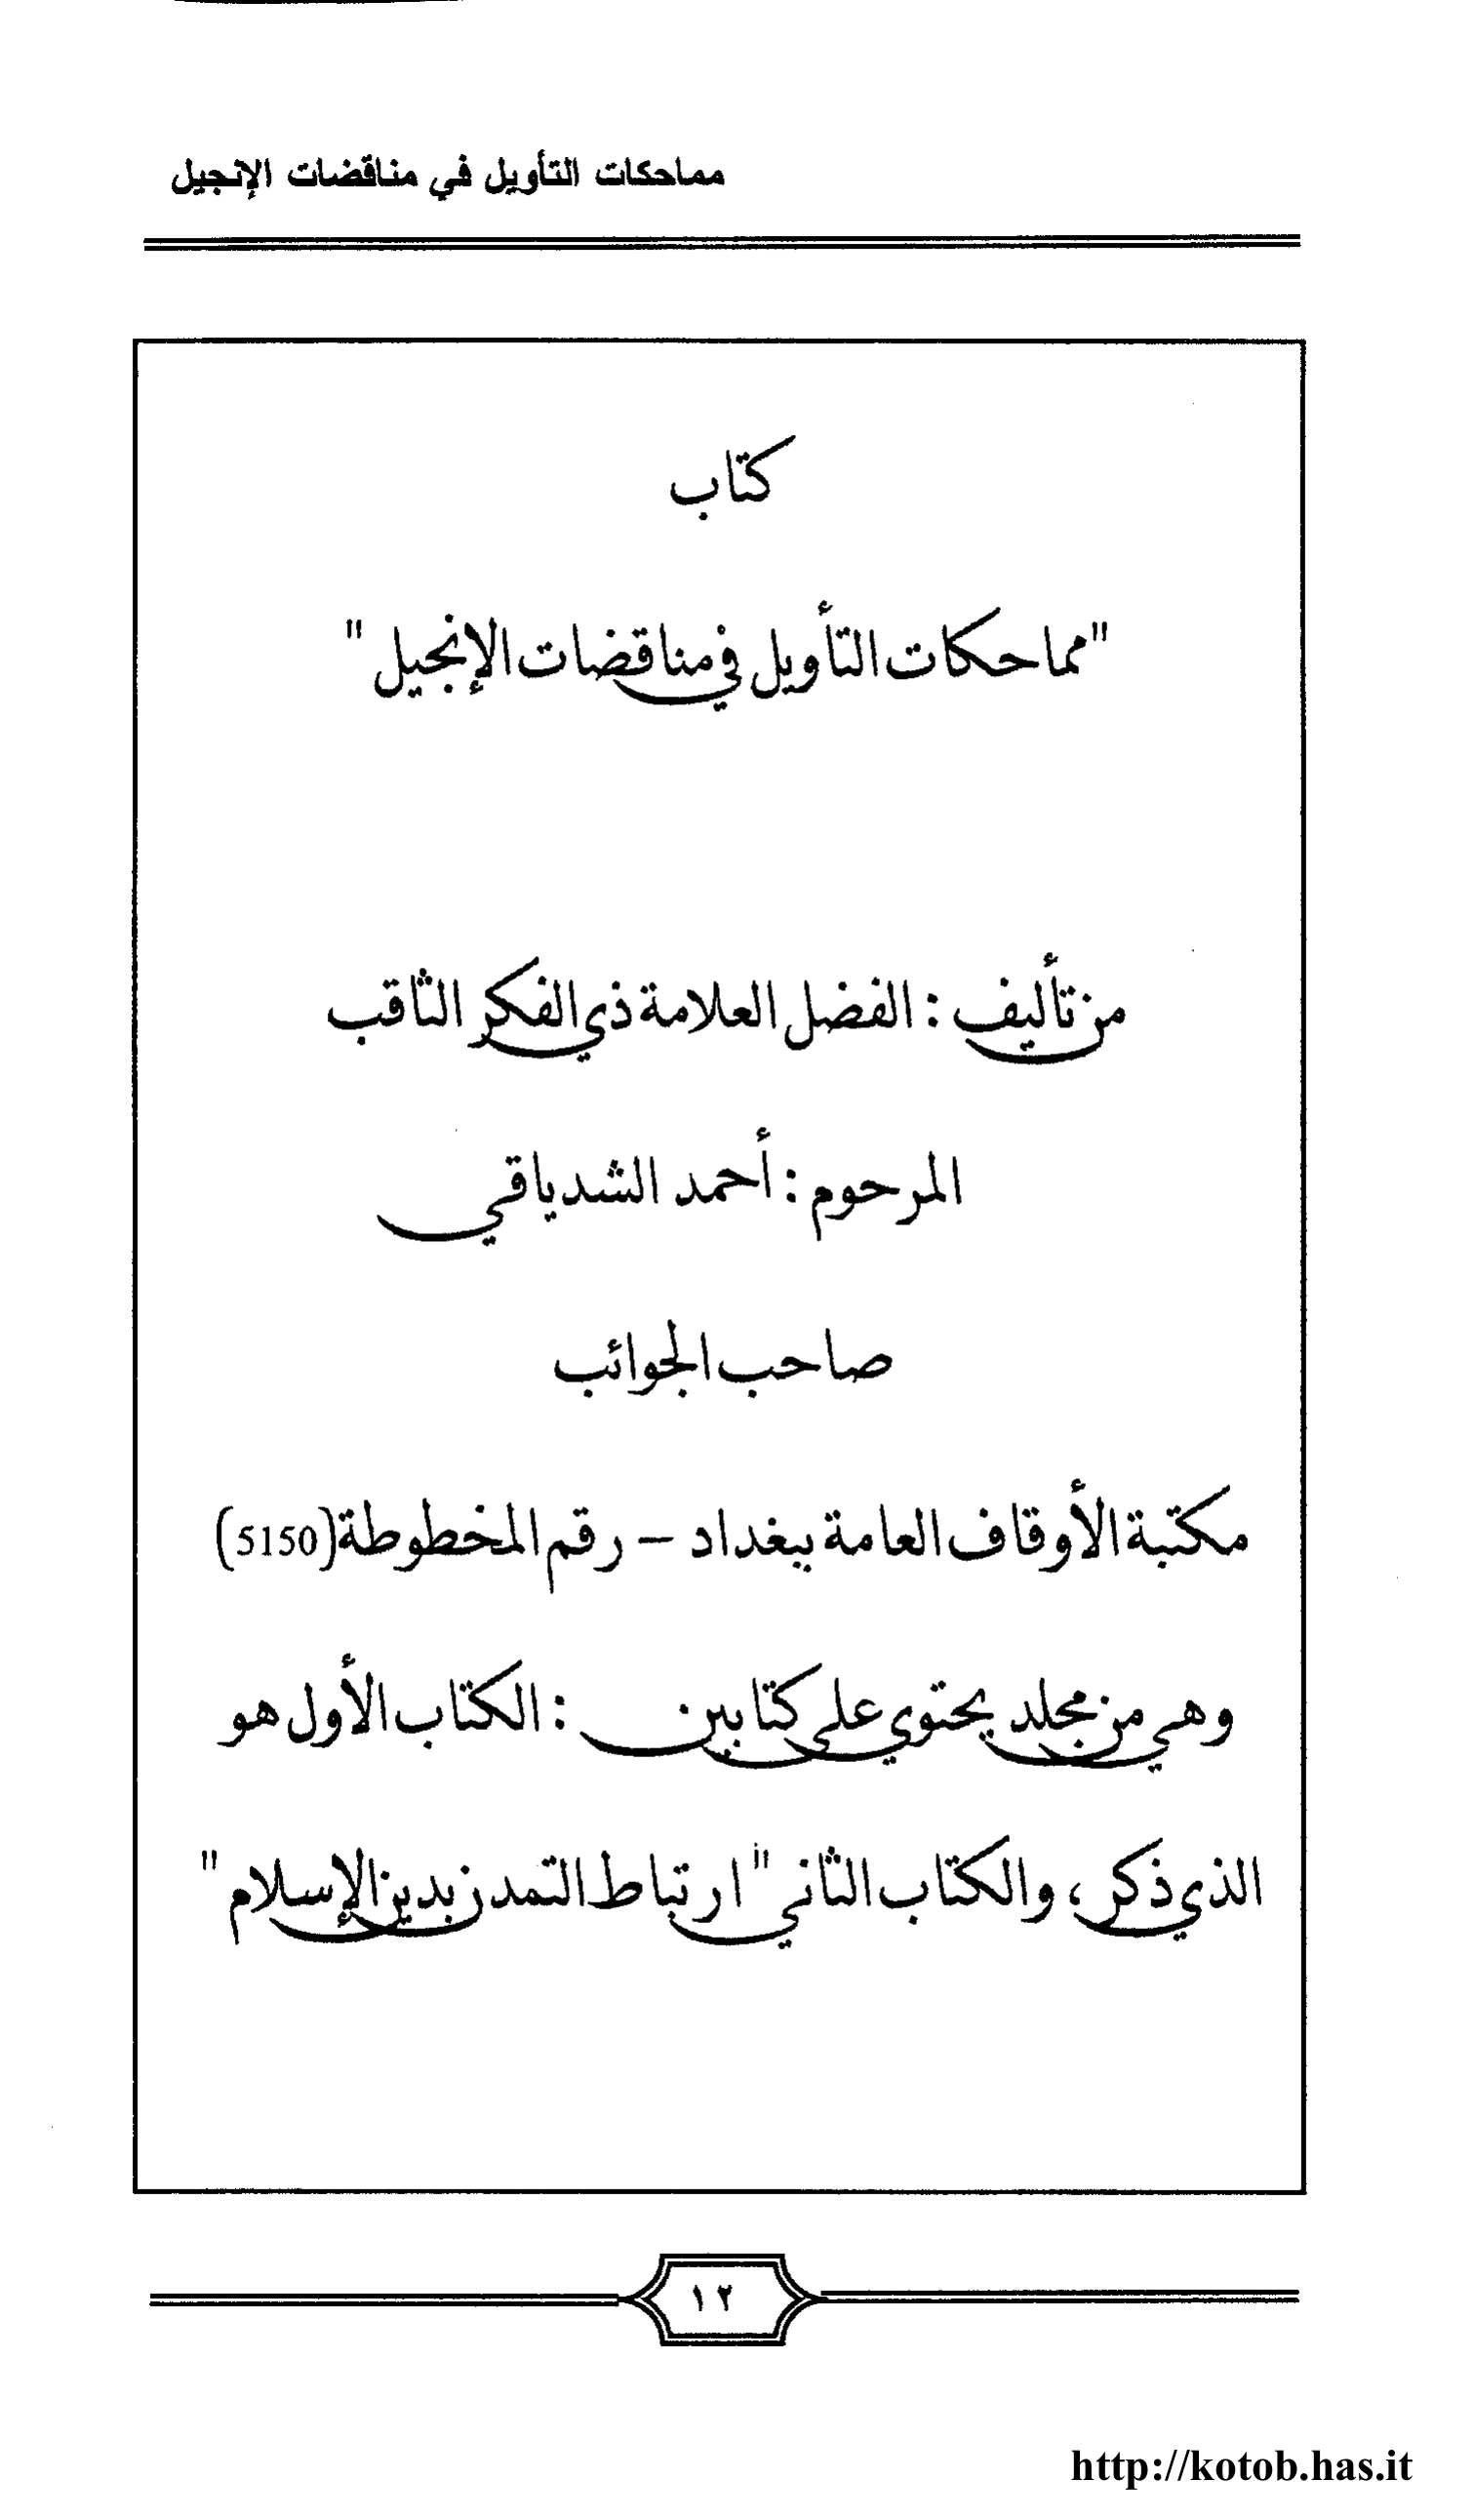 مماحكات التأويل في مناقضات الإنجيل
كتاب
"مماحكات التأويل في مناقضات الإنجيل"
من تأليف : الفضل العلامة ذي الفكر الثاقب
المرحوم : أحمد الشدياقي
صاحب الجوائب
مكتبة الأوقاف العامة ببغداد – رقم المخطوطة (5150)
وهي من مجلد يحتوي على كتابين : الكتاب الأول هو
الذي ذكر ، والكتاب الثاني "ارتباط التمدن بدين الإسلام"
١٢
http://kotob.has.it